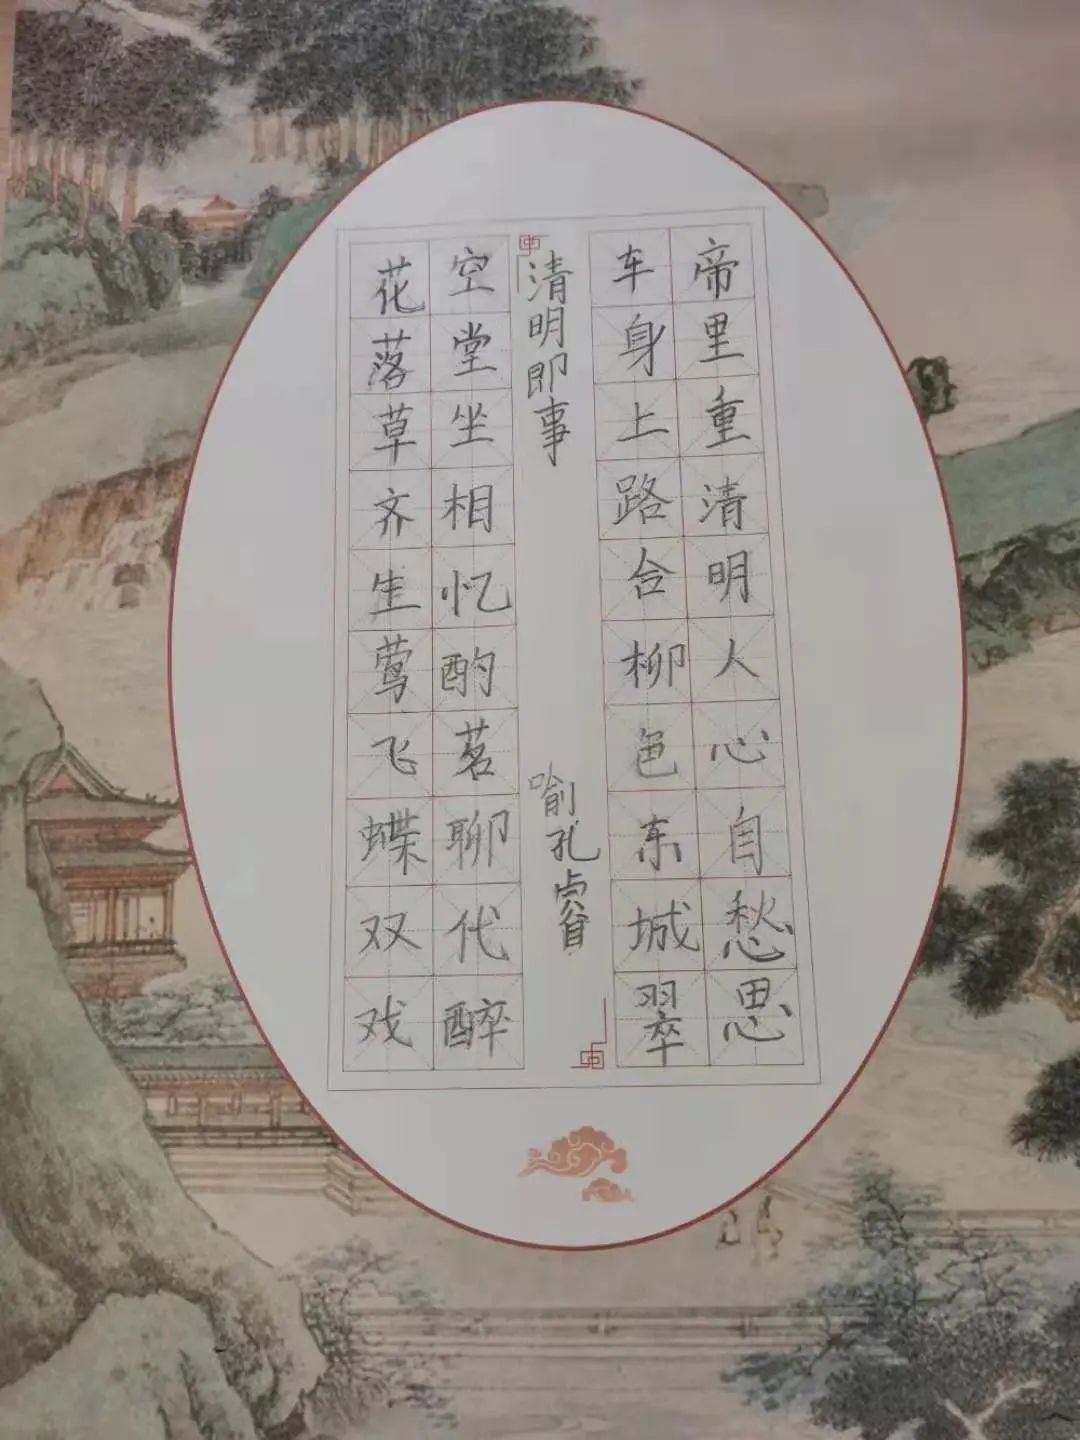 帝里重清明人心自愁思
车身上路合柳色东城翠
清明即事
喻孔睿
空堂坐相忆酌茗聊代醉
花落草齐生莺飞蝶双戏